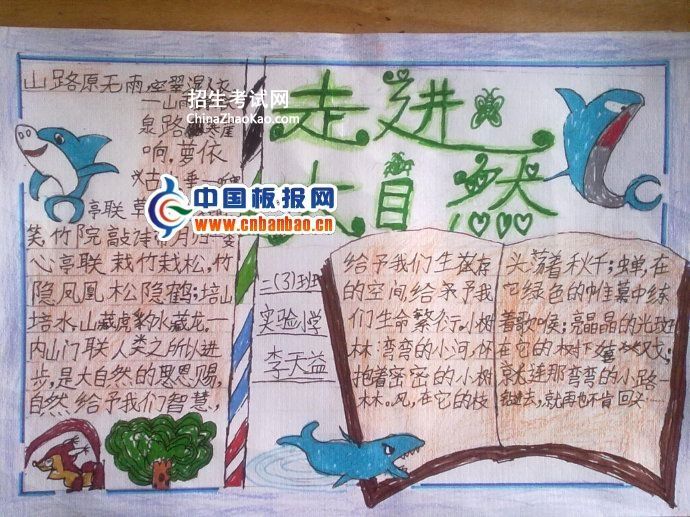 山路原无雨
招生考试网
ChinaZhaoKao.com
泉路
响,萝依
中国板报网
www.cnbanbao.cn
亭联
笑,竹院敲
心亭联 栽竹栽松,竹
隐凤凰,松隐鹤;培山
培水,山藏虎豹水藏龙。一
内山门联 人类之所以进
步,是大自然的恩赐,
自然给予我们智慧,
走进
大自然
二(3)班
实验小学
李天益
给予我们生存
的空间,给予我
们生命繁衍。小树
林。弯弯的小河,怀
抱着密密的小树
林。风,在它的枝
头荡着秋千;蝉,在
它绿色的帷幕中练
着歌喉;亮晶晶的光斑
在它的树下
就连那弯弯的小路一
进去,就再也不肯回头……